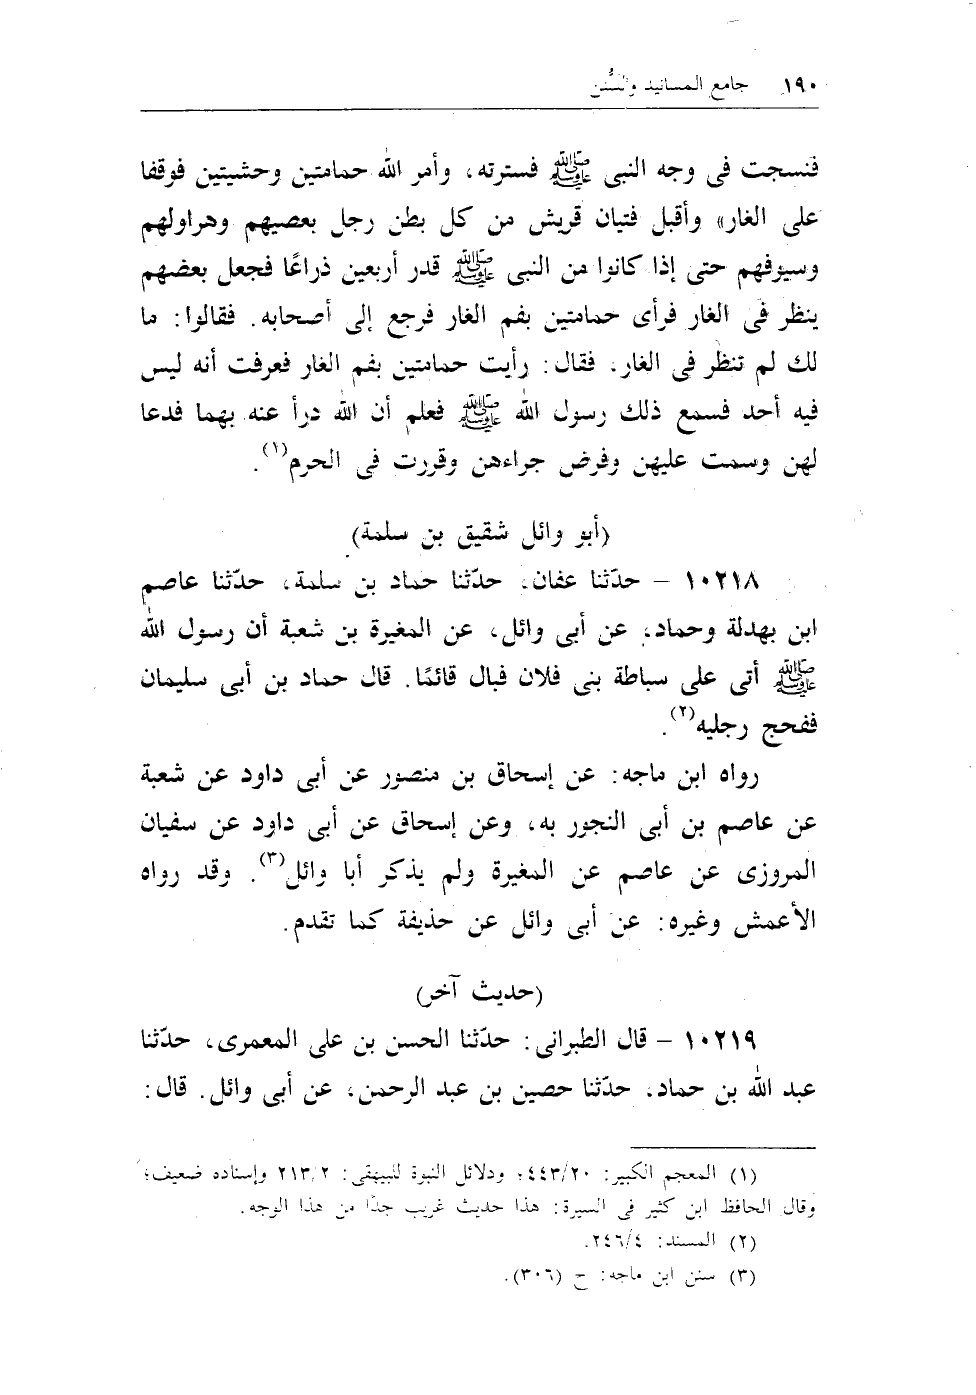 ١٩٠ جامع المسانيد والسُّنن
فنسجت فى وجه النبى ﷺ فسترته، وأمر الله حمامتين وحشيتين فوقفا
على الغار» وأقبل فتيان قريش من كل بطن رجل بعصيهم وهراولهم
وسيوفهم حتى إذا كانوا من النبى ﷺ قدر أربعين ذراعًا فجعل بعضهم
ينظر فى الغار فرأى حمامتين بفم الغار فرجع إلى أصحابه. فقالوا: ما
لك لم تنظر فى الغار، فقال: رأيت حمامتين بفم الغار فعرفت أنه ليس
فيه أحد فسمع ذلك رسول الله ﷺ فعلم أن الله درأ عنه بهما فدعا
لهن وسمت عليهن وفرض جراءهن وقررت فى الحرم(١).
(أبو وائل شقيق بن سلمة)
١٠٢١٨ – حدّثنا عفان، حدّثنا حماد بن سلمة، حدّثنا عاصم
ابن بهدلة وحماد، عن أبى وائل، عن المغيرة بن شعبة أن رسول الله
ﷺ أتى على سباطة بنى فلان فبال قائمًا. قال حماد بن أبى سليمان
ففحج رجليه(٢).
رواه ابن ماجه: عن إسحاق بن منصور عن أبى داود عن شعبة
عن عاصم بن أبى النجور به، وعن إسحاق عن أبى داود عن سفيان
المروزى عن عاصم عن المغيرة ولم يذكر أبا وائل(٣). وقد رواه
الأعمش وغيره: عن أبى وائل عن حذيفة كما تقدم.
(حديث آخر)
١٠٢١٩ – قال الطبرانى: حدّثنا الحسن بن على المعمرى، حدّثنا
عبد الله بن حماد، حدّثنا حصين بن عبد الرحمن، عن أبى وائل. قال:
(١) المعجم الكبير: ٤٤٣/٢٠؛ ودلائل النبوة للبيهقى: ٢١٣/٢ وإسناده ضعيف؛
وقال الحافظ ابن كثير فى السيرة: هذا حديث غريب جدًا من هذا الوجه.
(٢) المسند: ٢٤٦/٤.
(٣) سنن ابن ماجه: ح (٣٠٦).